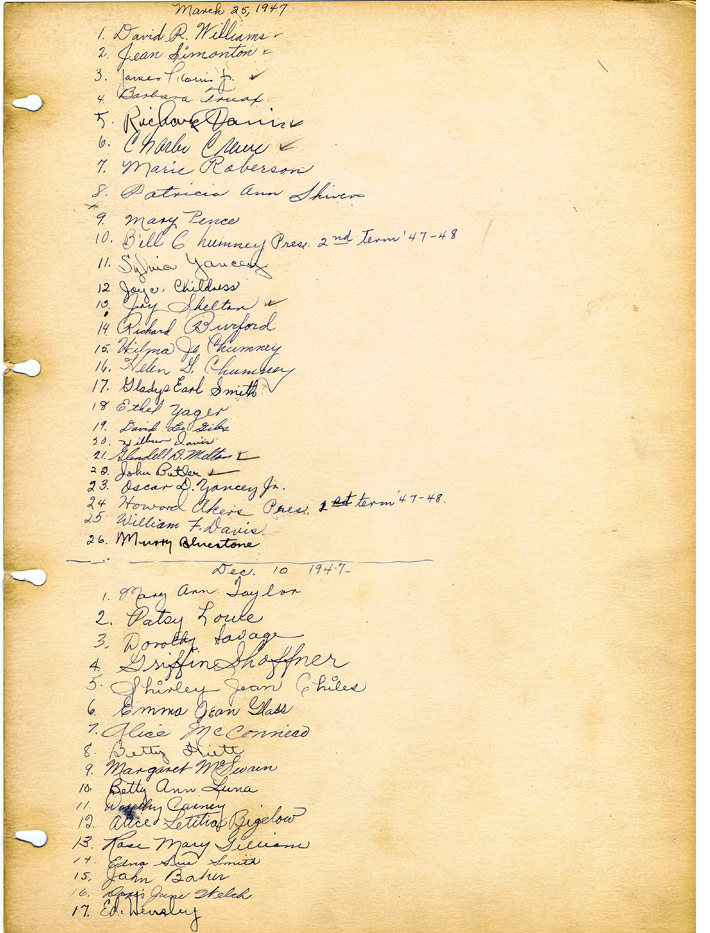 March 25, 1947
1. David R. Williams
2. Jean Simonton
3. James Jr.
4. Barbara Truax
5. Richard Davis
6. Charles
7. Marie Roberson
8. Patricia Ann Shivers
9. Mary Pence
10. Bill Chumney Pres. 2nd term '47-48
11. Sylvia Yancey
12 Joyce Childress
13. Joy Shelton
14. Richard Burford
15. Wilma Jo Chumney
16. Helen G. Chumney
17. Gladys Earl Smith
18 Ethel Yager
19. David Lee
20. Wilbur Davis
21. Glendell D. Melton
22. John Butler
23. Oscar D. Yancey Jr.
24 Howard Akers Pres. 1st term '47-48.
25 William F. Davis
26. Murry Bluestone
Dec. 10 1947
1. Mary Ann Taylor
2. Patsy Lowe
3. Dorothy Savage
4. Griffin Shaffner
5. Shirley Jean Chiles
6. Emma Jean Glass
7. Alice McConnico
8. Betty Hiett
9. Margaret McSwain
10. Betty Ann Luna
11. Dorothy Carney
12. Alice Letitia Bigelow
13. Rose Mary Gilliam
14. Edna Sue Smith
15. John Baker
16. Doris June Welch
17. Ed. Hensley